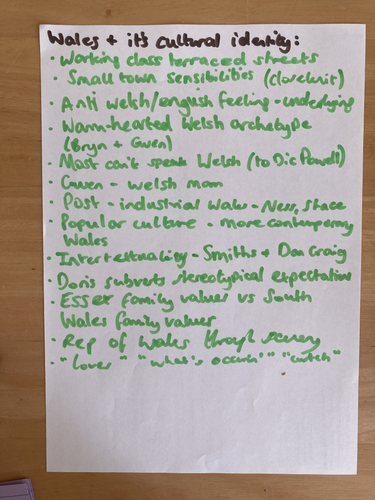 Wales + it's cultural identity:
• Working class terraced streets
• Small town sensibilities (closeknit)
• Anti welsh/english feeling - underlying
• Warm-hearted Welsh archetype
(Bryn + Gwen)
• Most can't speak Welsh (to Dic Powell)
• Gwen - welsh mam
• Post-industrial Wales - Ness, Stace
• Popular culture - more contemporary
Wales
• Intertextuality - Smiths + Dan Craig
• Doris subverts stereotypical expectations
• Essex family values vs South
Wales family values
• Rep of Wales through scenery
• "lover" "what's occurin'" "cwtch"